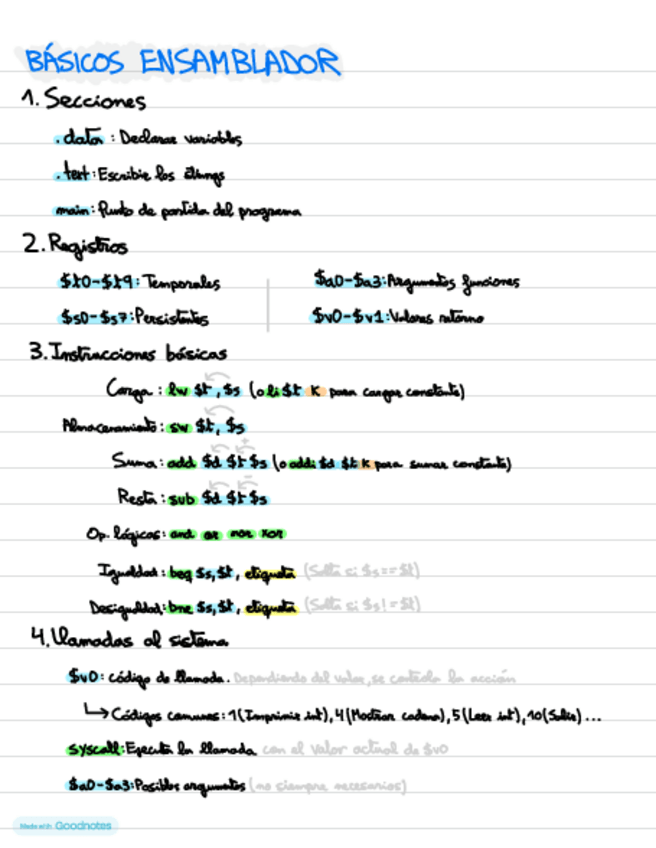 BÁSICOS ENSAMBLADOR
1. Secciones
.data : Declarar variables
.text: Escribir los
main: Punto de partida del programa
2. Registros
$t0-$t9: Temporales
$a0-$a3: Argumentos funciones
$s0-$s7: Persistentes
$v0-$v1: Valores retorno
3. Instrucciones básicas
Carga : lw $t, $s (o li $t K para cargar constante)
Almacenamiento: sw $t, $s
Suma: add $d $t $s (o addi $d $t K para sumar constante)
Resta: sub $d $t $s
Op. lógicas: and or nor xor
Igualdad: beq $s, $t, etiqueta (Salta si $s==$t)
Desigualdad: bne $s, $t, etiqueta (Salta si $s!=$t)
4. Llamadas al sistema
$v0: código de llamada. Dependiendo del valor, se controla la acción
↳ Códigos comunes: 1 (Imprimir int), 4 (Mostrar cadena), 5 (Leer int), 10 (Salir) ...
syscall: Ejecuta la llamada con el valor actual de $v0
$a0-$a3: Posibles argumentos (no siempre necesarios)
Made with Goodnotes